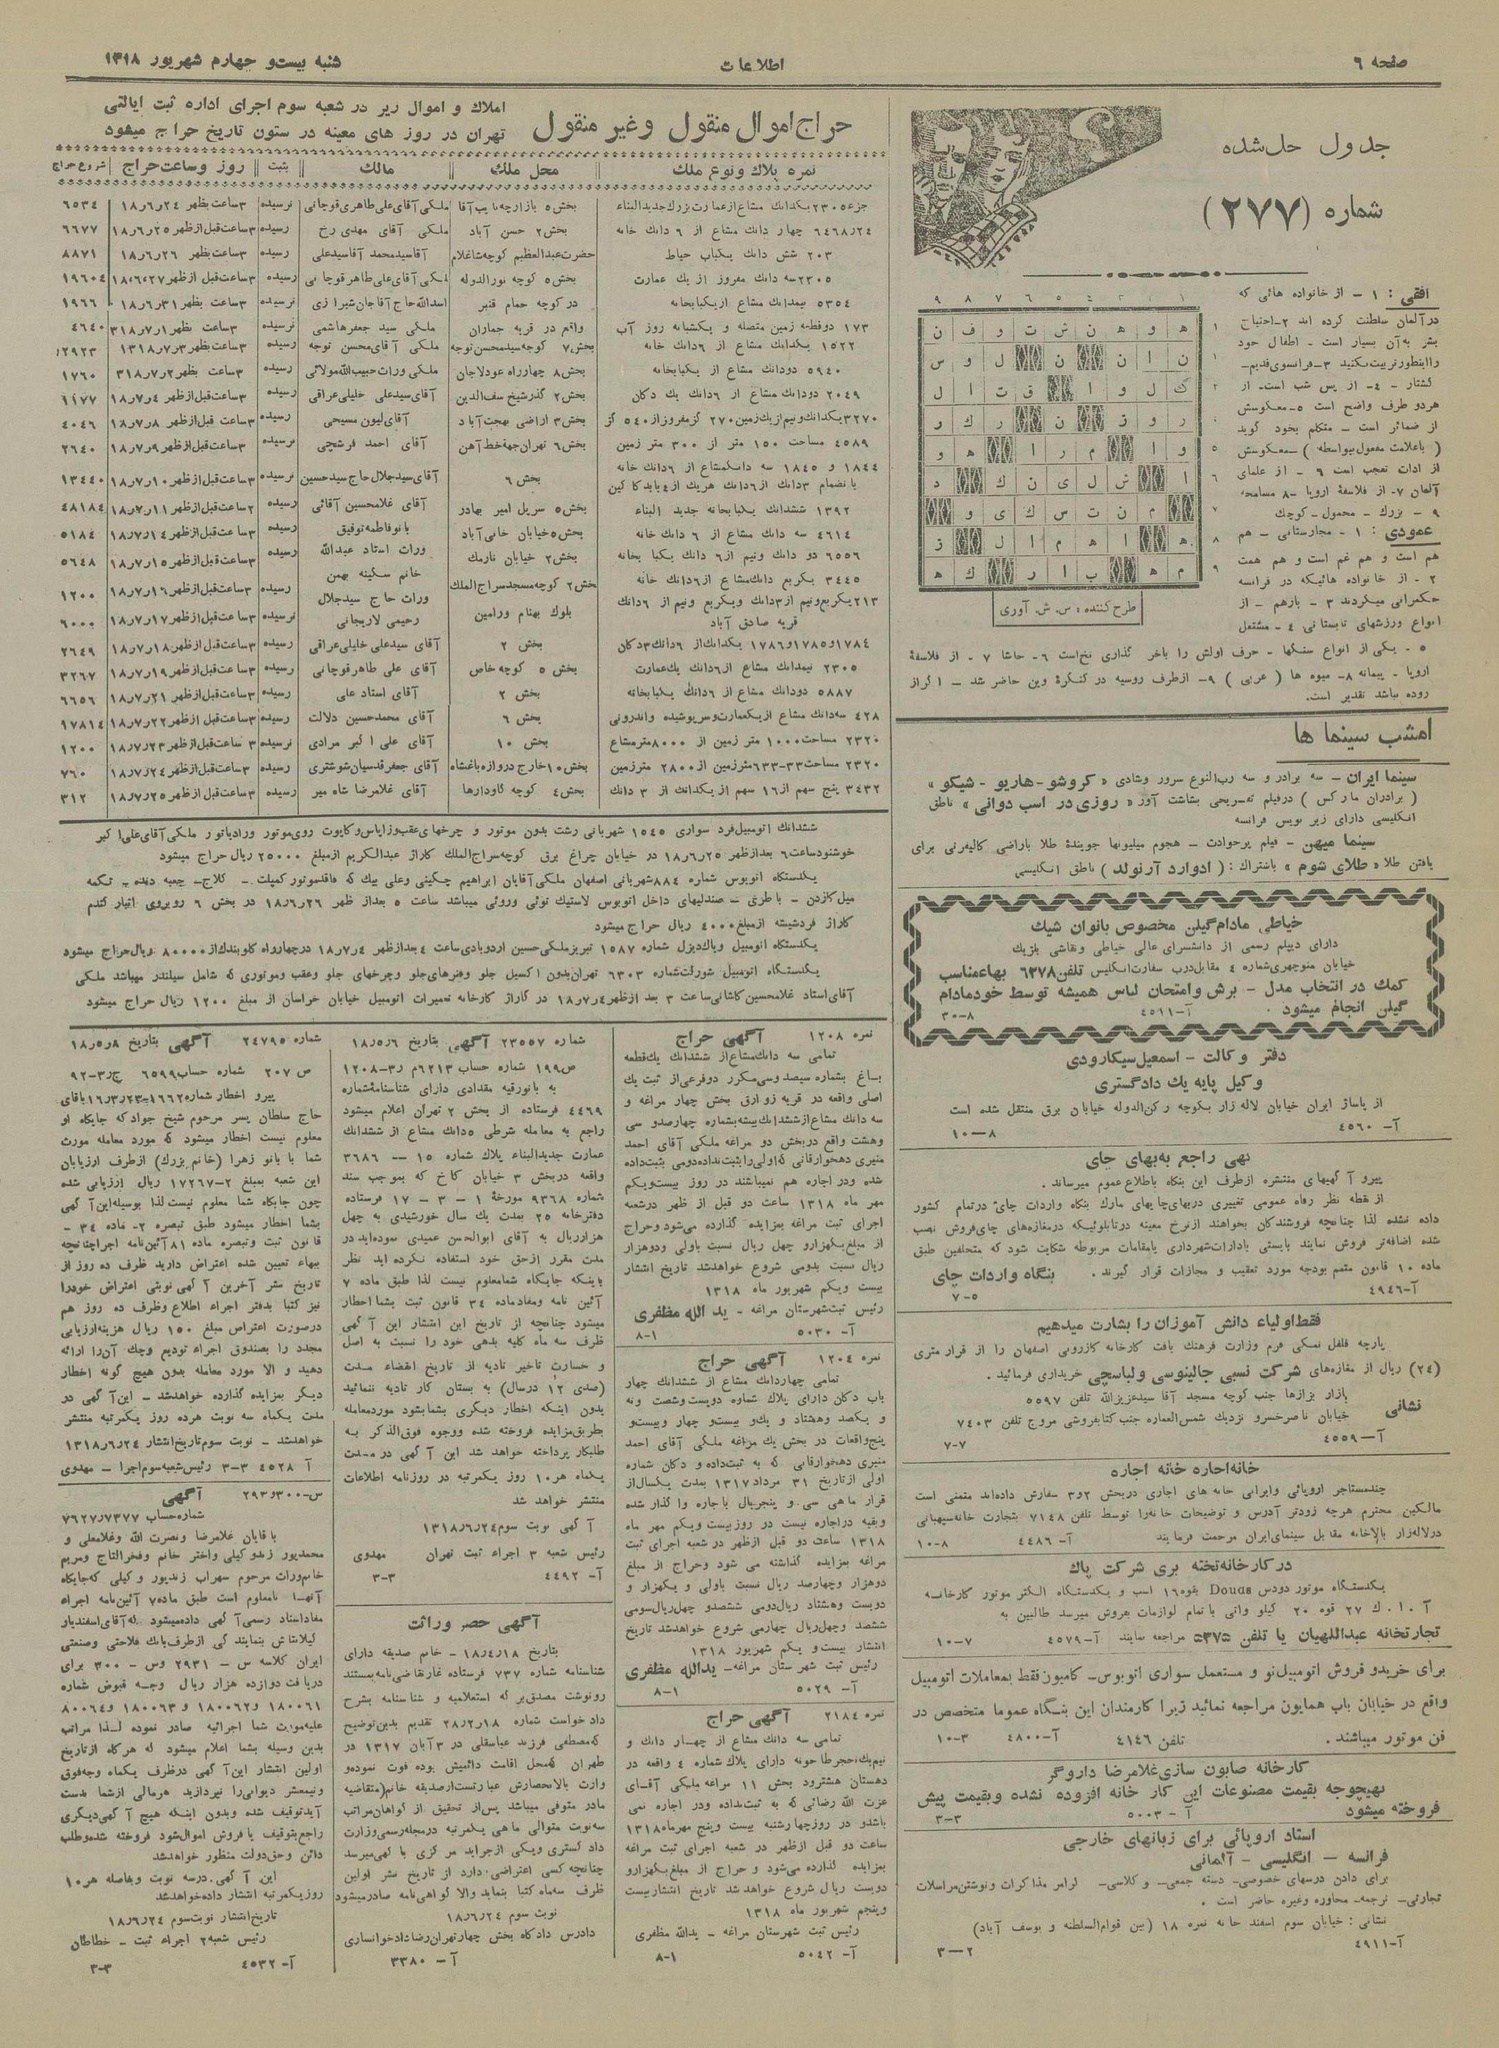 صفحه ۶
اطلاعات
شنبه بیست و چهارم شهریور ۱۳۱۸
جدول حل شده
شماره (۲۷۷)
افقی : ۱ – از خانواده هائی که
در آلمان سلطنت کرده اند ۲– احتیاج
بشر به آن بسیار است – اطفال خود
را اینطور تربیت مکنید ۳– فرانسوی قدیم–
کشتار – ۴– از پس شب است. از
هر دو طرف واضح است ۵– معکوسش
از ضمائر است – متکلم بخود گوید
(باعلامت مفعول بیواسطه) – معکوسش
از ادات تعجب است ۶ – از علمای
آلمان ۷– از فلاسفهٔ اروپا –۸ مسامحه
۹ – بزرگ – محمول – کوچک
عمودی : ۱ – مجارستانی – هم
هم است و هم غم است و هم همت
۲ – از خانواده هائیکه در فرانسه
حکمرانی میکردند ۳ – بازهم – از
انواع ورزشهای تابستانی ۴ – مشتعل
۵ – یکی از انواع سنگها – حرف اولش را باخر گذاری نخ است ۶– حاشا ۷ – از فلاسفهٔ
اروپا – پیمانه ۸– میوه ها (عربی) ۹– از طرف روسیه در کنگرهٔ وین حاضر شد – اگر از
روده نباشد تقدیر است.
طرح کننده : س . ش . آوری
امشب سینما ها
سینما ایران – سه برادر و سه رب النوع سرور و شادی « کروشو – هارپو – شیکو »
( برادران مارکس ) در فیلم تفریحی بشاشت آور « روزی در اسب دوانی » ناطق
انگلیسی دارای زیر نویس فرانسه
سینما میهن – فیلم پرحوادث – هجوم میلیونها جویندهٔ طلا باراضی کالیفرنی برای
یافتن طلا « طلای شوم » باشتراک : ( ادوارد آرنولد ) ناطق انگلیسی
خیاطی مادام گیلن مخصوص بانوان شیک
دارای دیپلم رسمی از دانشسرای عالی خیاطی و نقاشی بلژیک
خیابان منوچهری شماره ۴ مقابل درب سفارت انگلیس تلفن ۶۳۷۸ بهاء مناسب
کمک در انتخاب مدل – برش و امتحان لباس همیشه توسط خود مادام
گیلن انجام میشود . آ–۴۵۱۱ ۳۰–۸
دفتر وکالت – اسمعیل سیکارودی
وکیل پایه یک دادگستری
از پاساژ ایران خیابان لاله زار بکوچه رکن الدوله خیابان برق منتقل شده است
آ– ۴۵۶۰ ۱۰–۸
نهی راجع به بهای چای
پیرو آگهیهای منتشره از طرف این بنگاه باطلاع عموم میرساند .
از نقطه نظر رفاه عمومی تغییری در بهای چایهای مارک بنگاه واردات چای در تمام کشور
داده نشده لذا چنانچه فروشندگان بخواهند از نرخ معینه در تابلوئیکه در مغازه های چای فروش نصب
شده اضافه تر فروش نمایند بایستی بادارات شهرداری یا مقامات مربوطه شکایت شود که متخلفین طبق
ماده ۱۰ قانون متمم بودجه مورد تعقیب و مجازات قرار گیرند . بنگاه واردات چای
آ–۴۹۴۶ ۷–۵
فقط اولیاء دانش آموزان را بشارت میدهیم
پارچه فلفل نمکی فرم وزارت فرهنگ بافت کارخانه کازرونی اصفهان را از قرار متری
(۲۴) ریال از مغازه های شرکت نسبی جالینوسی ولباسچی خریداری فرمائید .
نشانی بازار بزازها جنب کوچه مسجد آقا سید عزیزالله تلفن ۵۵۹۷
خیابان ناصر خسرو نزدیک شمس العماره جنب کتابفروشی مروج تلفن ۷۴۰۳
آ–۴۵۵۹ ۷–۷
خانه اجاره خانه اجاره
چند مستاجر اروپائی و ایرانی خانه های اجاری در بخش ۲ و ۳ سفارش داده اند متمنی است
مالکین محترم هرچه زودتر آدرس و توضیحات خانه را توسط تلفن ۷۱۴۸ بتجارت خانه سپهبانی
در لاله زار بالاخانه مقابل سینمای ایران مرحمت فرمایند آ– ۴۴۸۶ ۱۰–۸
در کارخانه تخته بری شرکت پاک
یکدستگاه موتور دودس Douds بقوه ۱۶ اسب و یکدستگاه الکتر موتور کارخانه
آ . ا . ک ۲۷ قوه ۲۰ کیلو واتی با تمام لوازمات بفروش میرسد طالبین به
تجارتخانه عبداللهیان یا تلفن ۵۳۷۵ مراجعه نمایند آ–۴۵۷۹ ۱۰–۷
برای خرید و فروش اتومبیل نو و مستعمل سواری اتوبوس – کامیون فقط بمعاملات اتومبیل
واقع در خیابان باب همایون مراجعه نمائید زیرا کارمندان این بنگاه عموما متخصص در
فن موتور میباشند . تلفن ۴۱۴۶ آ–۴۸۰۰ ۱۰–۳
کارخانه صابون سازی غلامرضا داروگر
بهیچوجه بقیمت مصنوعات این کارخانه افزوده نشده و بقیمت پیش
فروخته میشود آ – ۵۰۰۳ ۳–۳
استاد اروپائی برای زبانهای خارجی
فرانسه – انگلیسی – آلمانی
برای دادن درسهای خصوصی – دسته جمعی – و کلاسی – لرامر مذاکرات و نوشتن مراسلات
تجارتی – ترجمه – محاوره وغیره حاضر است .
نشانی : خیابان سوم اسفند خانه نمره ۱۸ (بین قوام السلطنه و یوسف آباد)
آ–۴۹۱۱ ۳–۲
حراج اموال منقول و غیر منقول
املاک و اموال زیر در شعبه سوم اجرای اداره ثبت ایالتی
تهران در روز های معینه در ستون تاریخ حراج میشود
نمره پلاک و نوع ملک | محل ملک | مالک | ثبت | روز و ساعت حراج | شروع حراج
جزء ۲۳۰۵ یکدانگ مشاع از عمارت بزرگ جدید البناء بخش ۵ بازارچه نایب آقا ملکی آقای علی طاهری قوچانی نرسیده ۳ ساعت بظهر ۱۸٫۶٫۲۴ ۶۵۳۴
۶۴۶۸٫۲۴ چهار دانگ مشاع از ۶ دانگ خانه بخش ۲ حسن آباد ملکی آقای مهدی رخ رسیده ۳ ساعت قبل از ظهر ۱۸٫۶٫۲۵ ۶۶۷۷
۲۰۳ شش دانگ یکباب حیاط حضرت عبدالعظیم کوچه شاغلام آقا سید محمد آقا سید علی رسیده ۳ ساعت بظهر ۱۸٫۶٫۲۶ ۸۸۷۱
۲۳۰۵ سه دانگ مفروز از یک عمارت بخش ۵ کوچه نورالدوله ملکی آقای علی طاهر قوچانی رسیده ۳ ساعت قبل از ظهر ۱۸٫۰۶٫۲۷ ۱۹۶۰۴
۵۳۵۴ نیمدانگ مشاع از یکبابخانه در کوچه حمام قنبر اسدالله حاج آقا جان شیرازی نرسیده ۳ ساعت بظهر ۱۸٫۶٫۳۱ ۱۹۶۶
۱۷۳ دو قطعه زمین متصله و یکشبانه روز آب واقع در قریه جماران ملکی سید جعفر هاشمی نرسیده ۳ ساعت بظهر ۳۱۸٫۷٫۱ ۴۶۴۰
۱۵۲۲ یکدانگ مشاع از ۶ دانگ خانه بخش ۷ کوچه سید محسن توجه ملکی آقای محسن توجه رسیده ۳ ساعت بظهر ۱۳۱۸٫۷٫۳ ۱۲۹۲۳
۵۹۴۰ دو دانگ مشاع از یکبابخانه بخش ۸ چهار راه عودلاجان ملکی وراث حبیب الله مولائی رسیده ۳ ساعت بظهر ۳۱۸٫۷٫۲ ۱۷۶۰
۲۰۴۹ دو دانگ مشاع از ۶ دانگ یک دکان بخش ۲ گذر شیخ سف الدین آقای سید علی خلیلی عراقی رسیده ۳ ساعت قبل از ظهر ۱۸٫۷٫۴ ۱۱۷۷
۳۲۷۰ یکدانگ و نیم از یک زمین ۲۷۰ گز مفروز از ۵۴۰ گز بخش ۳ اراضی بهجت آباد آقای لیون مسیحی رسیده ۳ ساعت قبل از ظهر ۱۸٫۷٫۸ ۴۰۴۶
۴۵۸۹ مساحت ۱۵۰ متر از ۳۰۰ متر زمین بخش ۶ تهران جهة خط آهن آقای احمد فرشچی نرسیده ۳ ساعت قبل از ظهر ۱۸٫۷٫۹ ۲۶۴۰
۱۸۴۴ و ۱۸۴۵ سه دانگ مشاع از ۶ دانگ خانه بخش ۶ آقای سید جلال حاج سید حسین رسیده ۳ ساعت قبل از ظهر ۱۸٫۷٫۱۰ ۱۳۴۴۰
بانضمام ۳ دانگ از ۶ دانگ هریک از ۴ باب دکاکین
۱۳۹۲ ششدانگ یکبابخانه جدید البناء بخش ۵ سرپل امیر بهادر آقای غلامحسین آقائی رسیده ۲ ساعت قبل از ظهر ۱۸٫۷٫۱۱ ۴۸۱۸۴
۴۶۱۴ سه دانگ مشاع از ۶ دانگ خانه بخش ۵ خیابان خانی آباد بانو فاطمه توفیق رسیده ۳ ساعت قبل از ظهر ۱۸٫۷٫۱۴ ۵۱۸۴
۶۵۵۶ دو دانگ ونیم از ۶ دانگ یکبابخانه بخش ۲ خیابان نارمک وراث استاد عبدالله رسیده ۳ ساعت قبل از ظهر ۱۸٫۷٫۱۵ ۵۶۴۸
۳۴۴۵ یکربع دانگ مشاع از ۶ دانگ خانه بخش ۲ کوچه مسجد سراج الملک خانم سکینه بهمن ۳ ساعت قبل از ظهر ۱۸٫۷٫۱۶ ۱۲۰۰
۲۱۳ یکربع ونیم از ۳ دانگ ویکربع ونیم از ۶ دانگ قریه صادق آباد بلوک بهنام ورامین وراث حاج سید جلال رحیمی لاریجانی ۳ ساعت قبل از ظهر ۱۸٫۷٫۱۷ ۶۰۰۰
۱۷۸۴ و ۱۷۸۵ و ۱۷۸۶ یکدانگ از ۶ دانگ ۳ دکان بخش ۲ آقای سید علی خلیلی عراقی رسیده ۳ ساعت قبل از ظهر ۱۸٫۷٫۱۸ ۲۶۴۹
۲۳۰۵ نیمدانگ مشاع از ۶ دانگ یک عمارت بخش ۵ کوچه خاص آقای علی طاهر قوچانی رسیده ۳ ساعت قبل از ظهر ۱۸٫۷٫۱۹ ۳۲۶۷
۵۸۸۷ دو دانگ مشاع از ۶ دانگ یکبابخانه بخش ۲ آقای استاد علی رسیده ۳ ساعت قبل از ظهر ۱۸٫۷٫۲۱ ۶۶۵۶
۴۲۸ سه دانگ مشاع از یک عمارت وسرپوشیده واندرونی بخش ۶ آقای محمد حسین دلالت رسیده ۳ ساعت قبل از ظهر ۱۸٫۷٫۲۲ ۱۷۸۱۴
۲۳۲۰ مساحت ۱۰۰۰ متر زمین از ۸۰۰۰ متر مشاع بخش ۱۰ آقای علی اکبر مرادی نرسیده ۳ ساعت قبل از ظهر ۱۸٫۷٫۲۳ ۱۲۰۰
۲۳۲۰ مساحت ۳۳–۶۳۳ متر زمین از ۲۸۰۰ متر زمین بخش ۱۰ خارج دروازه باغشاه آقای جعفر قدسیان شوشتری رسیده ۳ ساعت قبل از ظهر ۱۸٫۷٫۲۴ ۷۶۰
۳۴۳۲ پنج سهم از ۱۶ سهم از یکدانگ از ۳ دانگ بخش ۴ کوچه گاودارها آقای غلامرضا شاه میر رسیده ۳ ساعت قبل از ظهر ۱۸٫۷٫۲۵ ۳۱۲
ششدانگ اتومبیل فرد سواری ۱۵۴۵ شهربانی رشت بدون موتور و چرخهای عقب وزاپاس وکاپوت روی موتور ورادیاتور ملکی آقای علی اکبر
خوشنود ساعت ۶ بعد از ظهر ۱۸٫۶٫۲۵ در خیابان چراغ برق کوچه سراج الملک کاراژ عبدالکریم از مبلغ ۲۵۰۰۰ ریال حراج میشود
یکدستگاه اتوبوس شماره ۸۸۴ شهربانی اصفهان ملکی آقایان ابراهیم چگینی وعلی بیک که فاقد موتور کمپلت – کلاج – جعبه دنده – تکمه
میل کازدن – باطری – صندلیهای داخل اتوبوس لاستیک توئی وروئی میباشد ساعت ۵ بعد از ظهر ۱۸٫۶٫۲۶ در بخش ۶ روبروی انبار گندم
کاراژ فردشیشه از مبلغ ۴۰۰۰ ریال حراج میشود
یکدستگاه اتومبیل ویاک دیزل شماره ۱۵۸۷ تبریز ملکی حسین اردوبادی ساعت ۴ بعد از ظهر ۱۸٫۷٫۴ در چهار راه کلوبندک از ۸۰۰۰۰ ریال حراج میشود
یکدستگاه اتومبیل شورلت شماره ۶۳۰۳ تهران بدون اکسیل جلو وفنرهای جلو وچرخهای جلو وعقب وموتوری که شامل سیلندر میباشد ملکی
آقای استاد غلامحسین کاشانی ساعت ۳ بعد از ظهر ۱۸٫۷٫۴ در گاراژ کارخانه تعمیرات اتومبیل خیابان خراسان از مبلغ ۱۲۰۰ ریال حراج میشود
نمره ۱۲۰۸ آگهی حراج
تمامی سه دانگ مشاع از ششدانگ یک قطعه
باغ بشماره سیصد وسی مکرر دو فرعی از ثبت یک
اصلی واقعه در قریه زوارق بخش چهار مراغه و
سه دانگ مشاع از ششدانگ بیشه بشماره چهارصد و سی
وهشت واقع در بخش دو مراغه ملکی آقای احمد
منیری دهخوارقانی که اولی را بثبت نداده دومی بثبت داده
شده ودر اجاره هم نمیباشند در روز بیست ویکم
مهر ماه ۱۳۱۸ ساعت دو قبل از ظهر در شعبه
اجرای ثبت مراغه بمزایده گذارده می شود وحراج
از مبلغ یکهزار و چهل ریال نسبت باولی ودو هزار
ریال نسبت بدومی شروع خواهد شد تاریخ انتشار
بیست ویکم شهریور ماه ۱۳۱۸
رئیس ثبت شهرستان مراغه – یدالله مظفری
آ– ۵۰۳۰ ۸–۱
نمره ۱۲۰۴ آگهی حراج
تمامی چهار دانگ مشاع از ششدانگ چهار
باب دکان دارای پلاک شماره دویست وشصت ونه
و یکصد وهشتاد ویک و بیست و چهار و بیست و
پنج واقعات در بخش یک مراغه ملکی آقای احمد
منیری دهخوارقانی که به ثبت داده و دکان شماره
اولی از تاریخ ۳۱ مرداد ۱۳۱۷ بمدت یکسال از
قرار ماهی سی و پنج ریال باجاره واگذار شده
وبقیه در اجاره نیست در روز بیست ویکم مهر ماه
۱۳۱۸ ساعت دو قبل از ظهر در شعبه اجرای ثبت
مراغه بمزایده گذاشته می شود وحراج از مبلغ
دو هزار و چهارصد ریال نسبت باولی و یکهزار و
دویست وهشتاد ریال دومی ششصدو چهل ریال سومی
ششصد وچهل ریال چهارمی شروع خواهد شد تاریخ
انتشار بیست و یکم شهریور ۱۳۱۸
رئیس ثبت شهرستان مراغه – یدالله مظفری
آ– ۵۰۲۹ ۸–۱
نمره ۲۱۸۴ آگهی حراج
تمامی سه دانگ مشاع از چهار دانگ و
نیم یک حجر طاحونه دارای پلاک شماره ۴ واقعه در
دهستان هشترود بخش ۱۱ مراغه ملکی آقای
عزت الله رضائی که به ثبت داده ودر اجاره نمی
باشد و در روز چهارشنبه بیست وپنج مهرماه ۱۳۱۸
ساعت دو قبل از ظهر در شعبه اجرای ثبت مراغه
بمزایده گذارده می شود و حراج از مبلغ یکهزار و
دویست ریال شروع خواهد شد تاریخ انتشار بیست
وپنجم شهریور ماه ۱۳۱۸
رئیس ثبت شهرستان مراغه – یدالله مظفری
آ– ۵۰۴۲ ۸–۱
شماره ۲۳۵۵۷ آگهی بتاریخ ۱۸٫۵٫۶
ص ۱۹۹ شماره حساب ۶۲۱۳ م ر۳–۱۲۰۸
به بانو رقیه مقدادی دارای شناسنامه شماره
۴۴۶۹ فرستاده از بخش ۲ تهران اعلام میشود
راجع به معامله شرطی ۵ دانگ مشاع از ششدانگ
عمارت جدید البناء پلاک شماره ۱۵ – ۳۶۸۶
واقعه در بخش ۳ خیابان کاخ که بموجب سند
شماره ۹۳۶۸ مورخهٔ ۱ – ۳ – ۱۷ فرستاده
دفترخانه ۲۵ بمدت یک سال خورشیدی به چهل
هزار ریال به آقای ابوالحسن عمیدی نموده اید در
مدت مقرر از حق خود استفاده نکرده اید نظر
باینکه جایگاه شما معلوم نیست لذا طبق ماده ۷
آئین نامه ومفاد ماده ۳۴ قانون ثبت بشما اخطار
میشود چنانچه از تاریخ این انتشار این آگهی
ظرف سه ماه کلیه بدهی خود را نسبت به اصل
و خسارت تاخیر تادیه از تاریخ انقضاء مدت
(صدی ۱۲ در سال) به بستان کار تادیه ننمائید
بدون اینکه اخطار دیگری بشما بشود مورد معامله
بطریق مزایده فروخته شده ووجوه فوق الذکر به
طلبکار پرداخته خواهد شد این آگهی در مدت
یکماه هر ۱۰ روز یکمرتبه در روزنامه اطلاعات
منتشر خواهد شد
آگهی نوبت سوم ۱۳۱۸٫۶٫۲۴
رئیس شعبه ۳ اجراء ثبت تهران مهدوی
آ– ۴۴۹۲ ۳–۳
آگهی حصر وراثت
بتاریخ ۱۸٫۴٫۱۸ – خانم صدیقه دارای
شناسنامه شماره ۷۳۷ فرستاده غار تقاضی نامه بمستند
رونوشت مصدق بر که استعلامیه و شناسنامه بشرح
دادخواست شماره ۲۸٫۲٫۱۸ تقدیم بدین توضیح
که مصطفی فرزند عباسقلی در ۳ آبان ۱۳۱۷ در
طهران که محل اقامت دائمیش بوده فوت نموده و
وارث بالانحصارش عبارتست از صدیقه خانم (متقاضیه
مادر متوفی میباشد پس از تحقیق از گواهان مراتب
سه نوبت متوالی ماهی یکمرتبه در مجله رسمی وزارت
دادگستری ویکی از جراید مرکزی با گهی میرسد
چنانچه کسی اعتراضی دارد از تاریخ نشر اولین
ظرف سه ماه کتبا بنماید والا گواهی نامه صادر میشود
نوبت سوم ۱۸٫۶٫۲۴
دادرس دادگاه بخش چهار تهران رضا دادخوانساری
آ– ۳۳۸۰
شماره ۲۴۷۹۵ آگهی بتاریخ ۱۸٫۵٫۸
ص ۲۰۷ شماره حساب ۶۵۹۹ ج ر۳–۹۲
پیرو اخطار شماره ۱۶۶۲–۱۶٫۳٫۲۳ باقای
حاج سلطان پسر مرحوم شیخ جواد که جایگاه او
معلوم نیست اخطار میشود که مورد معامله مورث
شما با بانو زهرا (خانم بزرگ) از طرف ارزیابان
این شعبه بمبلغ ۲–۱۷۲۶۷ ریال ارزیابی شده
چون جایگاه شما معلوم نیست لذا بوسیله این آگهی
بشما اخطار میشود طبق تبصره ۲– ماده ۳۴ –
قانون ثبت وتبصره ماده ۸۱ آئین نامه اجرا چنانچه
ببهاء تعیین شده اعتراض دارید ظرف ده روز از
تاریخ نشر آخرین آگهی نوبتی اعتراض خود را
نیز کتبا بدفتر اجراء اطلاع وظرف ده روز هم
در صورت اعتراض مبلغ ۱۵۰ ریال هزینه ارزیابی
مجدد را بصندوق اجراء تودیع وچک آن را ارائه
دهید و الا مورد معامله بدون هیچ گونه اخطار
دیگر بمزایده گذارده خواهد شد – این آگهی در
مدت یکماه سه نوبت هر ده روز یکمرتبه منتشر
خواهد شد – نوبت سوم تاریخ انتشار ۱۳۱۸٫۶٫۲۴
آ ۴۵۲۸ ۳–۳ رئیس شعبه سوم اجرا – مهدوی
س–۳۰۰ و ۲۹۳ آگهی
شماره حساب ۷۶۲۷٫۷۳۷۷
باقایان غلامرضا ونصرت الله وغلامعلی و
محمد پور زند وکیلی واختر خانم وفخرالتاج ومریم
خانم وراث مرحوم سهراب زندپور و کیلی که جایگاه
آنها نامعلوم است طبق ماده ۷ آئین نامه اجراء
مفاد اسناد رسمی آگهی داده میشود که آقای اسفندیار
کیلانتاش بنمایندگی از طرف بانک فلاحتی وصنعتی
ایران کلاسه س – ۲۹۳۱ وس – ۳۰۰ برای
دریافت دوازده هزار ریال وجه قبوض شماره
۱۸۰۰۶۱ و ۱۸۰۰۶۲ و ۱۸۰۰۶۳ و ۸۰۰۶۴
علیه مورث شما اجرائیه صادر نموده لذا مراتب
بدین وسیله بشما اعلام میشود که هرگاه از تاریخ
اولین انتشار این آگهی در ظرف یکماه وجه فوق
ونیمعشر دیوانی را نپردازید هر مالی از شما بدست
آید توقیف شده وبدون اینکه هیچ آگهی دیگری
راجع بتوقیف یا فروش اموال شود فروخته شده وطلب
دائن وحق دولت منظور خواهد شد
این آگهی در سه نوبت وبفاصله هر ۱۰
روز یکمرتبه انتشار داده خواهد شد
تاریخ انتشار نوبت سوم ۱۸٫۶٫۲۴
رئیس شعبه ۲ اجراء ثبت – خطاطان
آ– ۴۵۳۲ ۳–۳